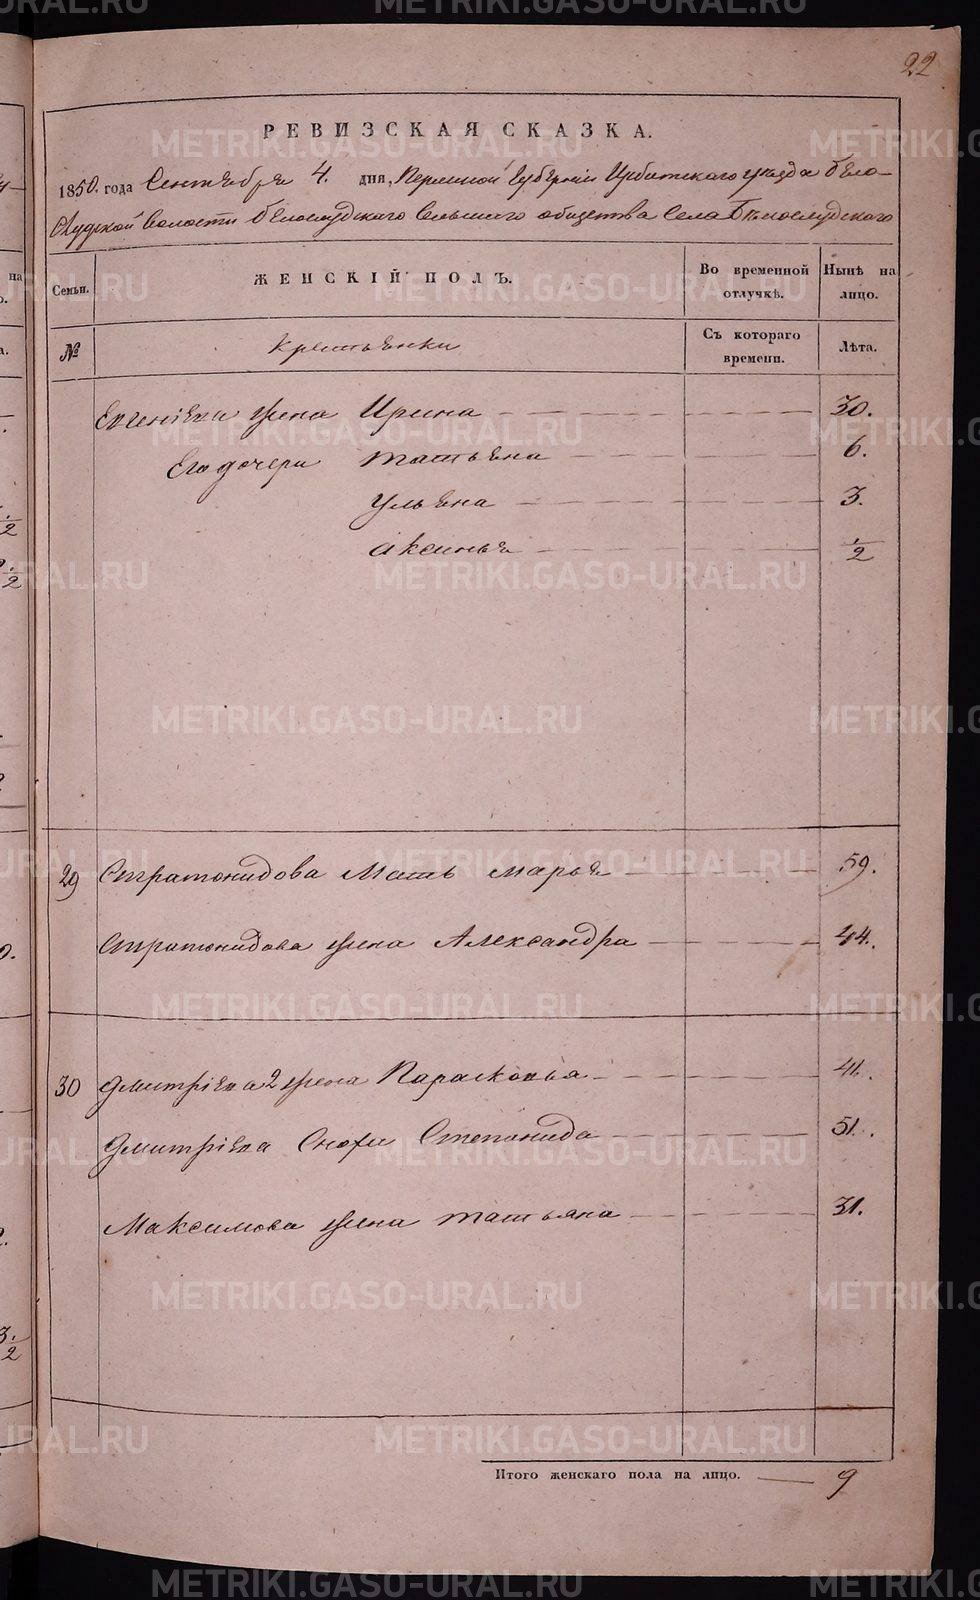 METRIKI.GASO-URAL.RU
22
РЕВИЗСКАЯ СКАЗКА.
1850. года Сентября 4. дня, Пермской Губернии Ирбитского уезда бѣло-
слудской волости бѣлослудского сельского общества села Бѣлослудского
Семьи. ЖЕНСКІЙ ПОЛЪ. Во временной отлучкѣ. Нынѣ на лицо.
№ Крестьянки Съ котораго времени. Лѣта.
Евгеніева жена Ирина 30.
Его дочери Татьяна 6.
Ульяна 3.
Аксинья 1/2
29 Стратонидова Мать Марья 59.
Стратонидова жена Александра 44.
30 Дмитріева 2 жена Парасковья 41.
Дмитріева Сноха Степонида 51.
Максимова жена Татьяна 31.
Итого женскаго пола на лицо. 9